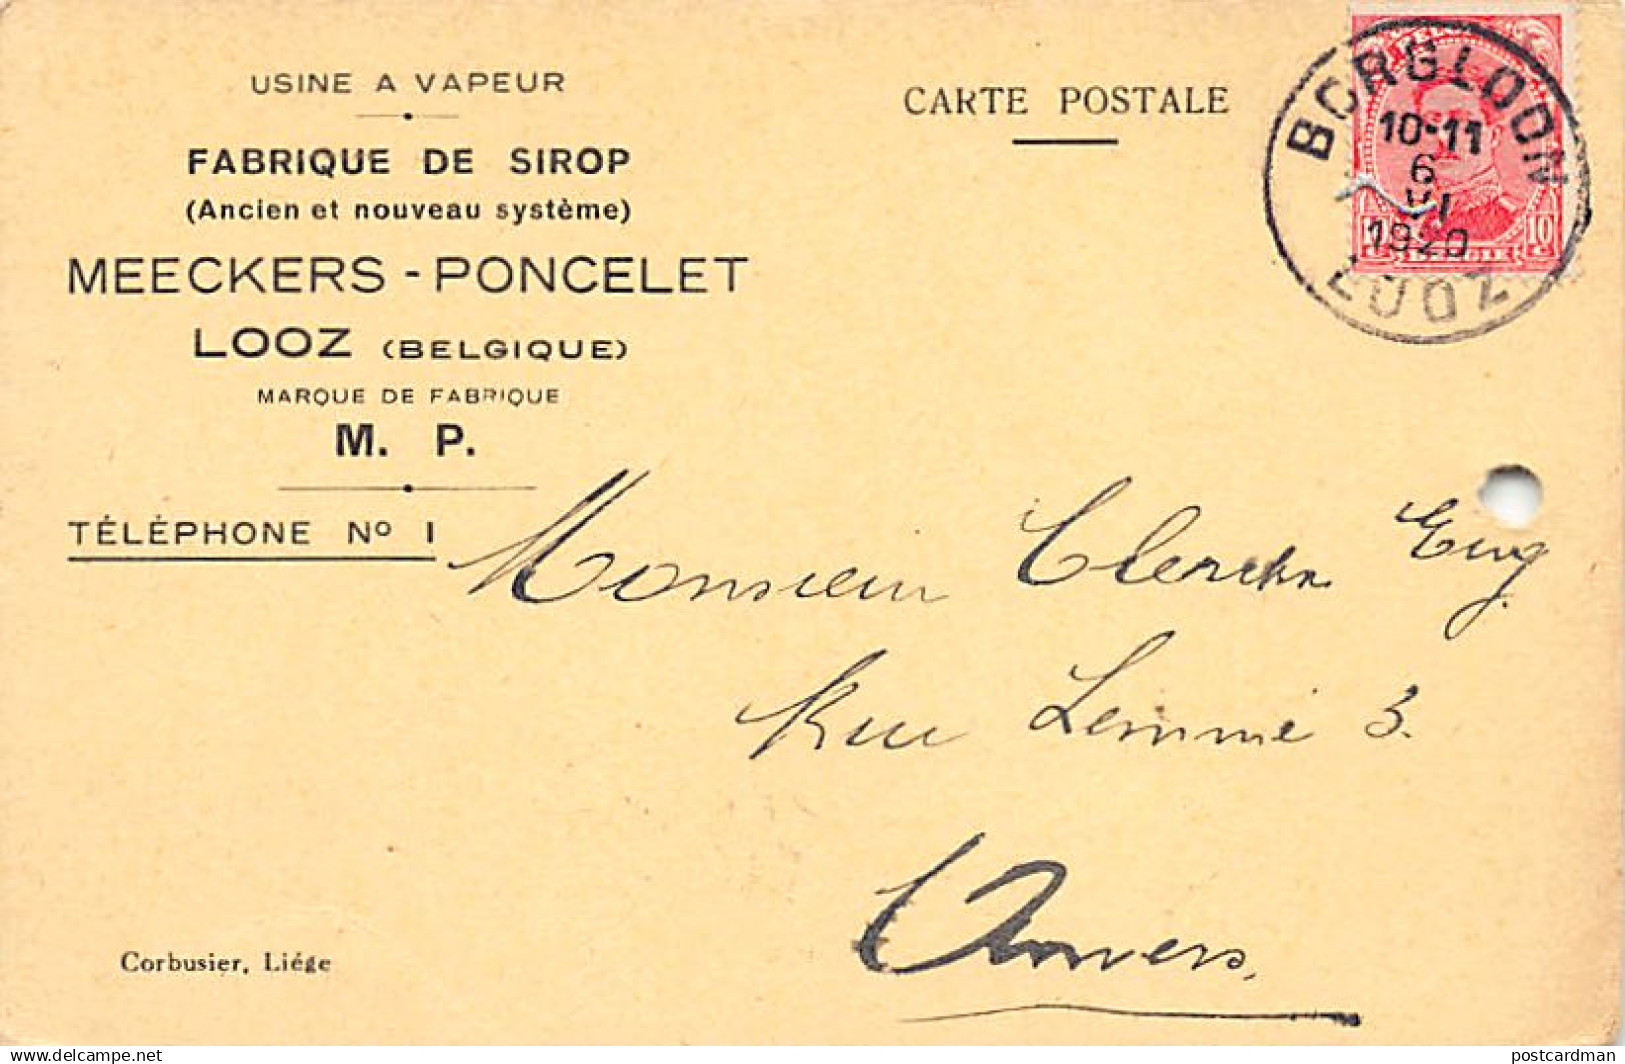 USINE A VAPEUR
FABRIQUE DE SIROP
(Ancien et nouveau système)
MEECKERS - PONCELET
LOOZ (BELGIQUE)
MARQUE DE FABRIQUE
M. P.
TÉLÉPHONE Nº 1
CARTE POSTALE
BORGLOON
10-11
6
VI
1920
LOOZ
10
BELGIE
Monsieur Clerckx Eug.
Rue Lemmé 3.
Anvers
Corbusier, Liége
delcampe.net
postcardman